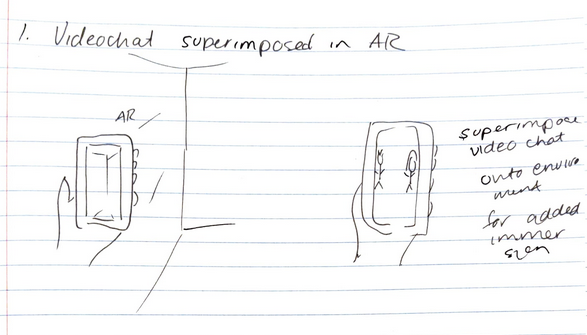 1. Videochat superimposed in AR
AR
superimpose
video chat
onto enviro
nment
for added
immer
sion